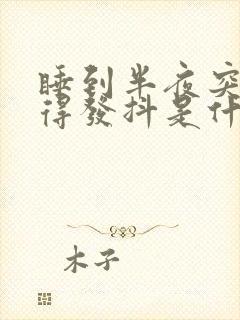 睡到半夜突
得發抖是什
木子